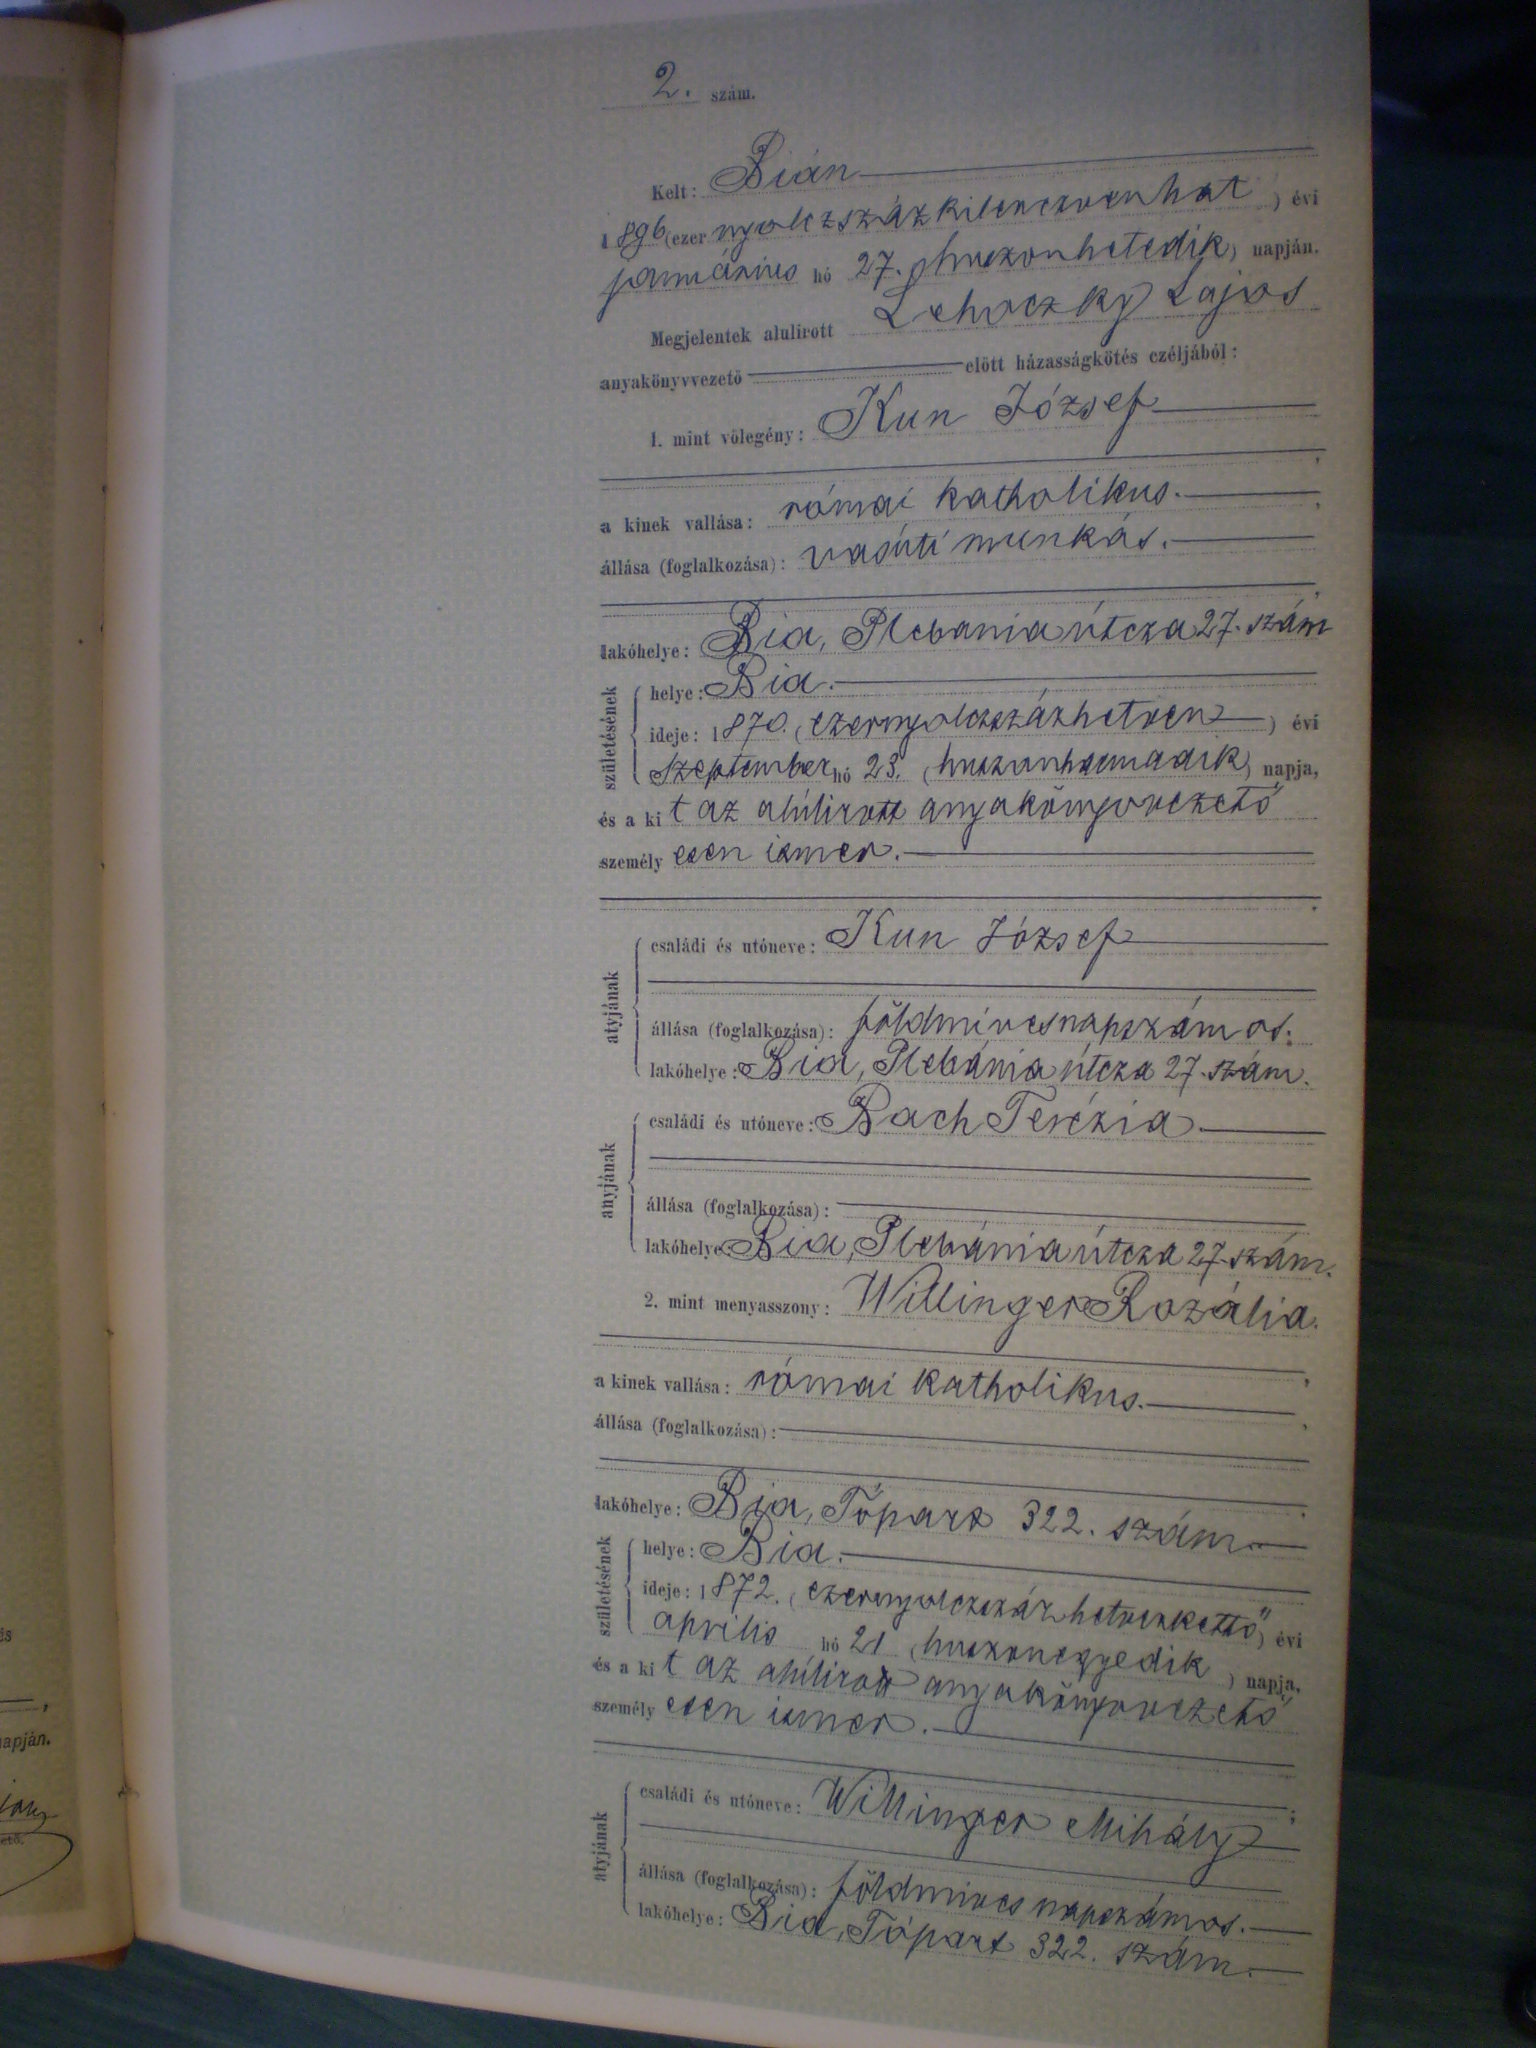 2. szám.
Kelt: Bián
1896 (ezer nyolczszázkilenczvenhat) évi
januáŕius hó 27. (huszonhetedik) napján.
Megjelentek alulirott Lehoczky Lajos
anyakönyvvezető előtt házasságkötés czéljából:
1. mint vőlegény: Kun József
a kinek vallása: római katholikus.
állása (foglalkozása): vasúti munkás.
lakóhelye: Bia, Plebania útcza 27. szám
születésének
helye: Bia.
ideje: 1870. (ezernyolczszázhetven) évi
szeptember hó 23. (huszonharmadik) napja,
és a kit az alúlirott anyakönyvvezető
személyesen ismer.
atyjának
családi és utóneve: Kun József
állása (foglalkozása): földmívesnapszámos.
lakóhelye: Bia, Plebánia útcza 27. szám.
anyjának
családi és utóneve: Bach Terézia.
állása (foglalkozása):
lakóhelye: Bia, Plebánia útcza 27. szám.
2. mint menyasszony: Willinger Rozália.
a kinek vallása: római katholikus.
állása (foglalkozása):
lakóhelye: Bia, Tópart 322. szám.
születésének
helye: Bia.
ideje: 1872. (ezernyolczszázhetvenkettő) évi
április hó 21 (huszonegyedik) napja,
és a kit az alúlirott anyakönyvvezető
személyesen ismer.
atyjának
családi és utóneve: Willinger Mihály
állása (foglalkozása): földmives napszámos.
lakóhelye: Bia, Tópart 322. szám.
napján.